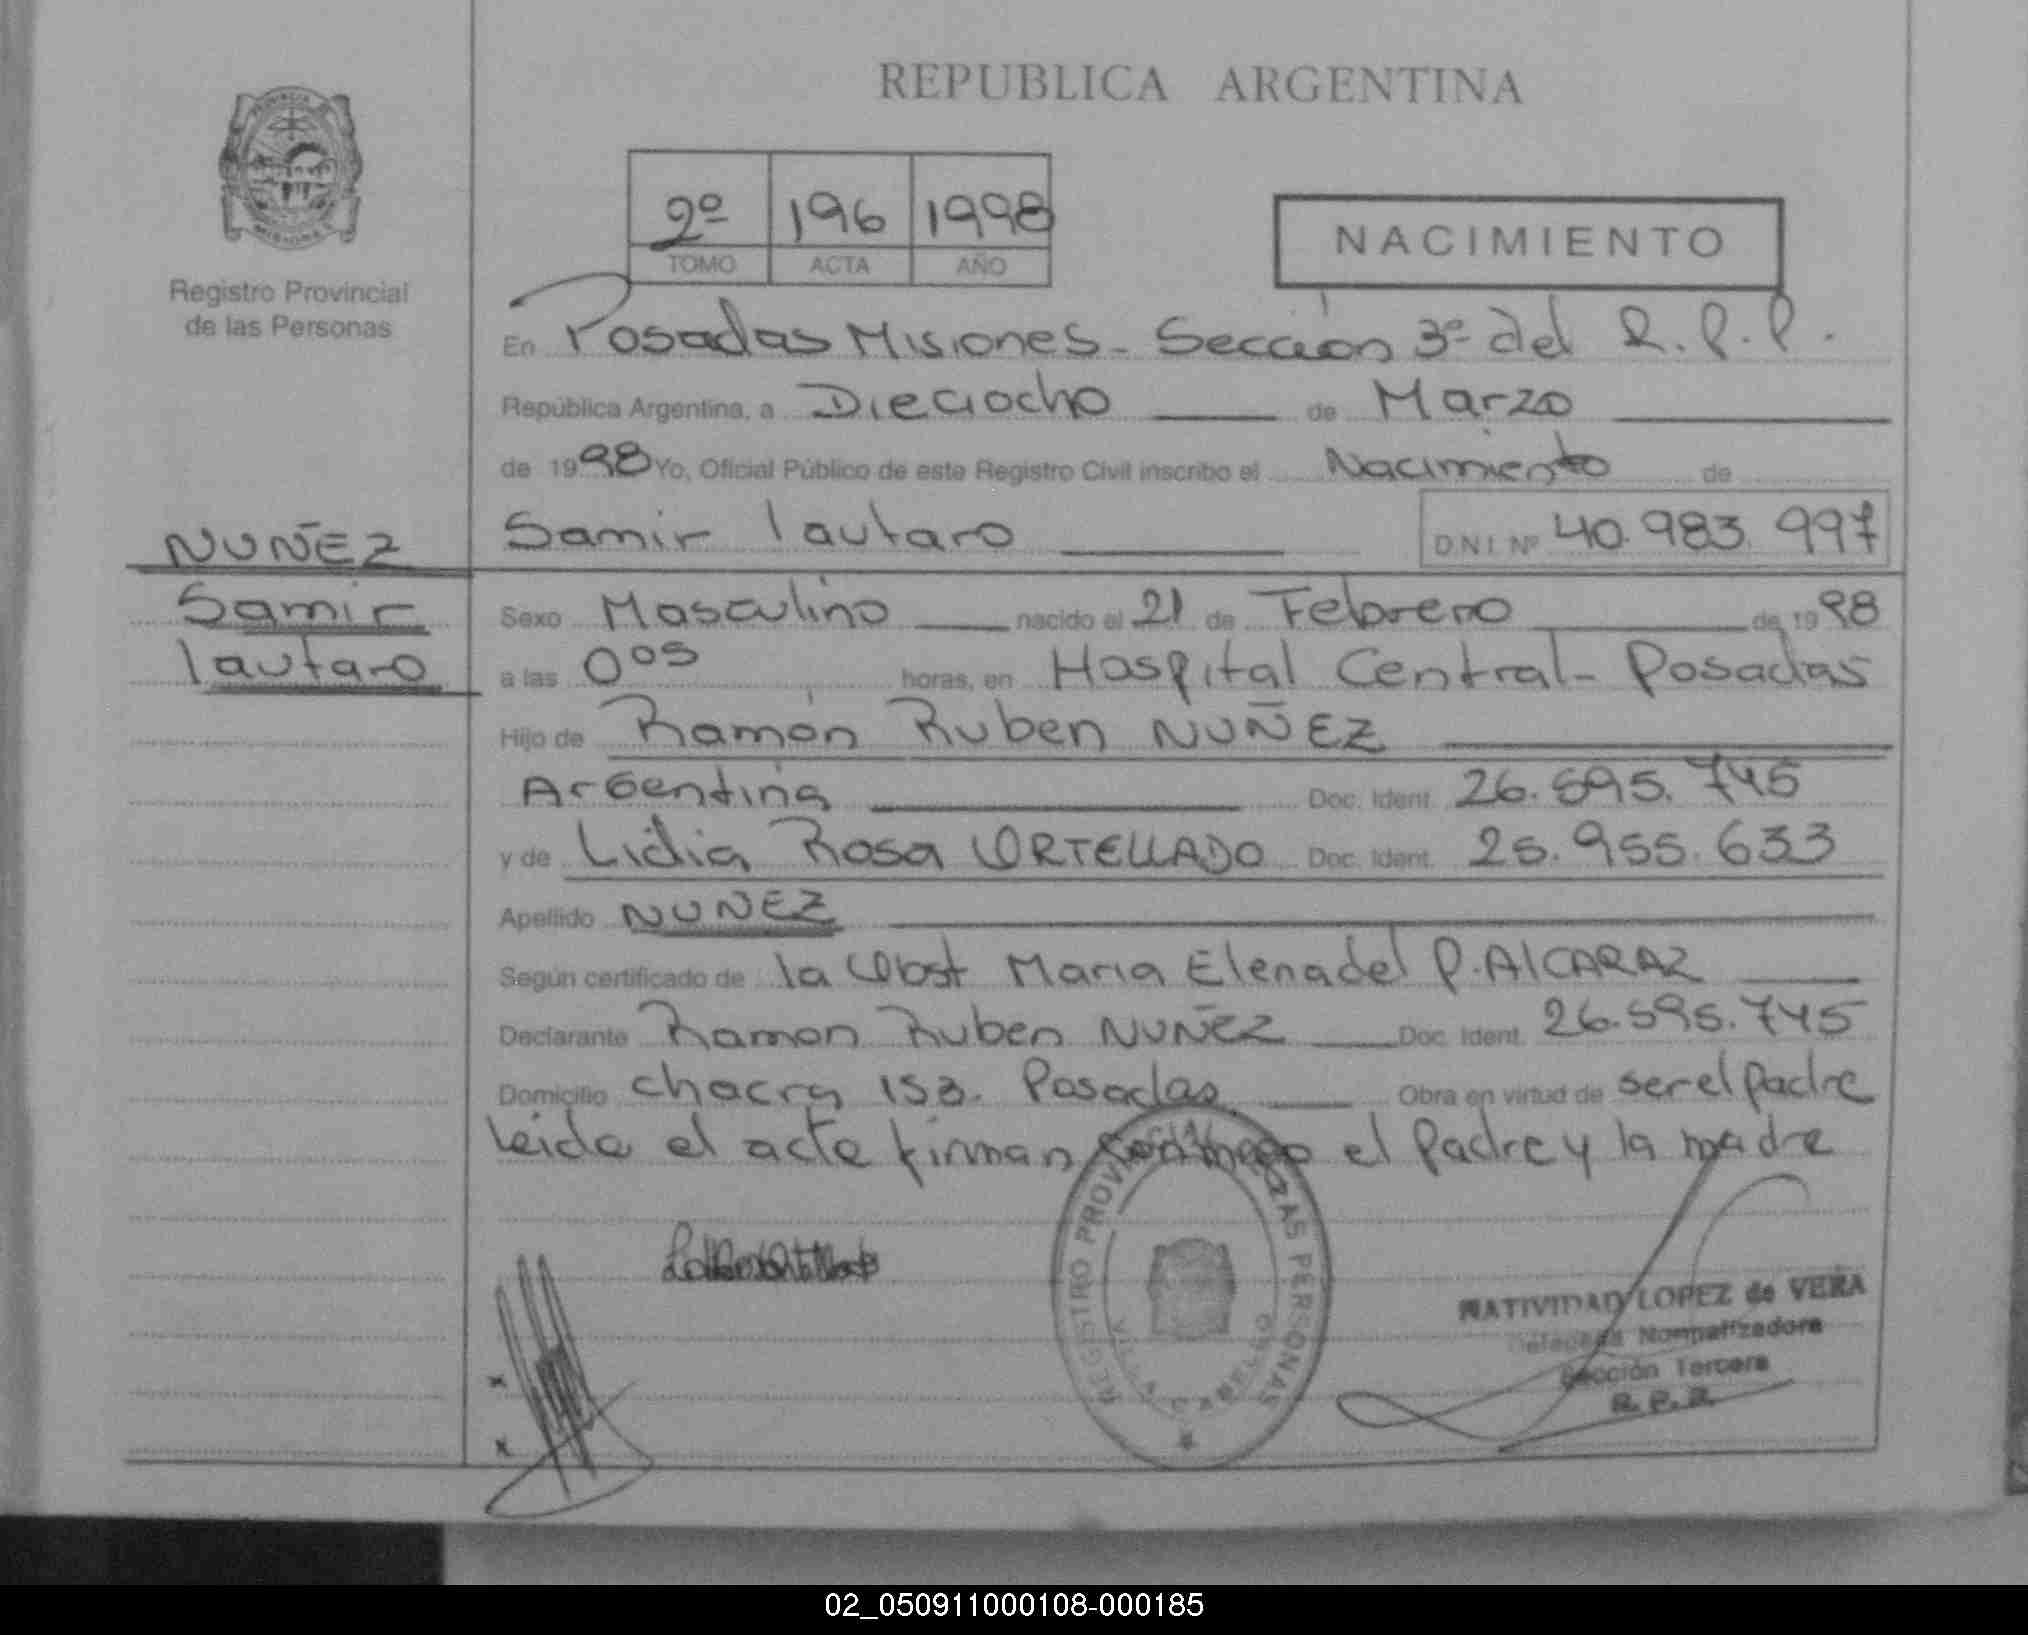 REPUBLICA ARGENTINA
2º 196 1998
TOMO ACTA AÑO
NACIMIENTO
MISIONES
Registro Provincial
de las Personas
En Posadas Misiones - Sección 3º del R.P.P.
República Argentina, a Dieciocho de Marzo
de 1998 Yo, Oficial Público de este Registro Civil inscribo el Nacimiento de
NUÑEZ
Samir
lautaro
Samir lautaro DNI Nº 40.983.997
Sexo Masculino nacido el 21 de Febrero de 1998
a las 0 05 horas, en Hospital Central - Posadas
Hijo de Ramón Ruben NUÑEZ
Argentina Doc. Ident. 26.595.745
y de Lidia Rosa ORTELLADO Doc. Ident. 25.955.633
Apellido NUÑEZ
Según certificado de la Obst Maria Elena del P. AlCARAZ
Declarante Ramon Ruben NUÑEZ Doc. Ident. 26.595.745
Domicilio chacra 153. Posadas Obra en virtud de ser el padre
leida el acta firman conmigo el padre y la madre
REGISTRO PROVINCIAL DE LAS PERSONAS
VILLA CABELLO
NATIVIDAD LOPEZ de VERA
Normalizadora
Sección Tercera
R.P.P.
02_050911000108-000185